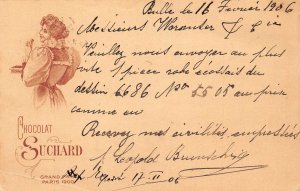 Bulle le 16 Février 1906
Messieurs Woranter & Cie
Veuillez nous envoyer au plus
vite 1 pièce robe écossais du
dessin 6686 No 5505 au prix
comme eu
Recevez mes civilités empressées
p. Léopold Brunschvig
17. II 06
CHOCOLAT
SUCHARD
GRAND PRIX
PARIS 1900